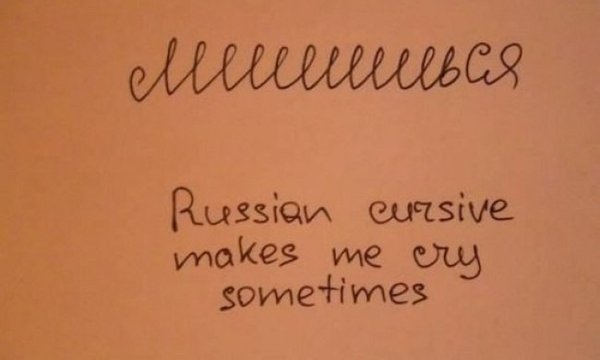 лишишься
Russian cursive
makes me cry
sometimes